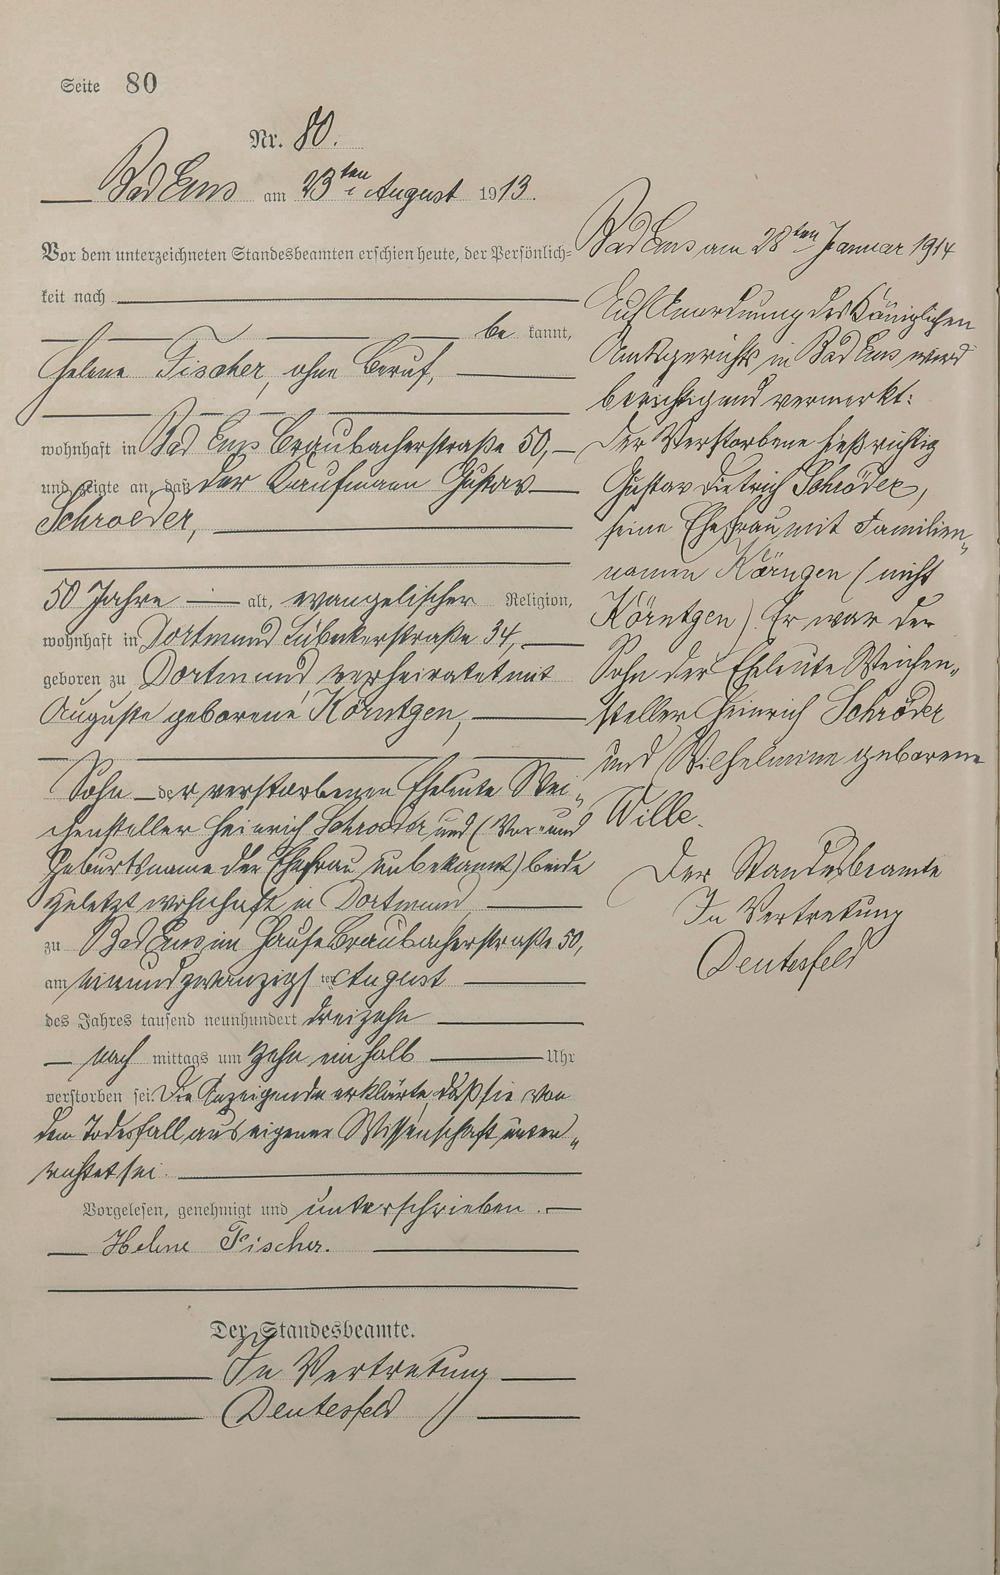 Seite 80
Nr. 80.
Bad Ems am 23ten August 1913.
Vor dem unterzeichneten Standesbeamten erschien heute, der Persönlich=
keit nach
be kannt,
Helene Fischer, ohne Beruf,
wohnhaft in Bad Ems Braubacherstraße 50,
und zeigte an, daß der Kaufmann Gustav
Schroeder,
50 Jahre alt, evangelischer Religion,
wohnhaft in Dortmund Lübekerstraße 34,
geboren zu Dortmund verheiratet mit
Auguste geborene Körntgen,
Sohn der verstorbenen Eheleute Wei„
chensteller Heinrich Schroeder und (Vor= und
Geburtsname der Ehefrau unbekannt) beide
zuletzt wohnhaft in Dortmund
zu Bad Ems im Hause Braubacherstraße 50,
am einundzwanzigsten August
des Jahres tausend neunhundert dreizehn
nach mittags um zehn ein halb Uhr
verstorben sei. Die Anzeigende erklärte, daß sie von
dem Todesfall aus eigener Wissenschaft unter„
richtet sei.
Vorgelesen, genehmigt und unterschrieben.
Helene Fischer.
Der Standesbeamte.
In Vertretung
Deutesfeld
Bad Ems am 28ten Januar 1914
Auf Anordnung des Königlichen
Amtsgerichts in Bad Ems wird
berichtigend vermerkt:
Der Verstorbene hieß richtig
Gustav Dietrich Schröder,
seine Ehefrau mit Familien„
namen Körngen (nicht
Körntgen). Er war der
Sohn der Eheleute Weichen„
steller Heinrich Schröder
und Wilhelmine geborene
Wille.
Der Standesbeamte
In Vertretung
Deutesfeld